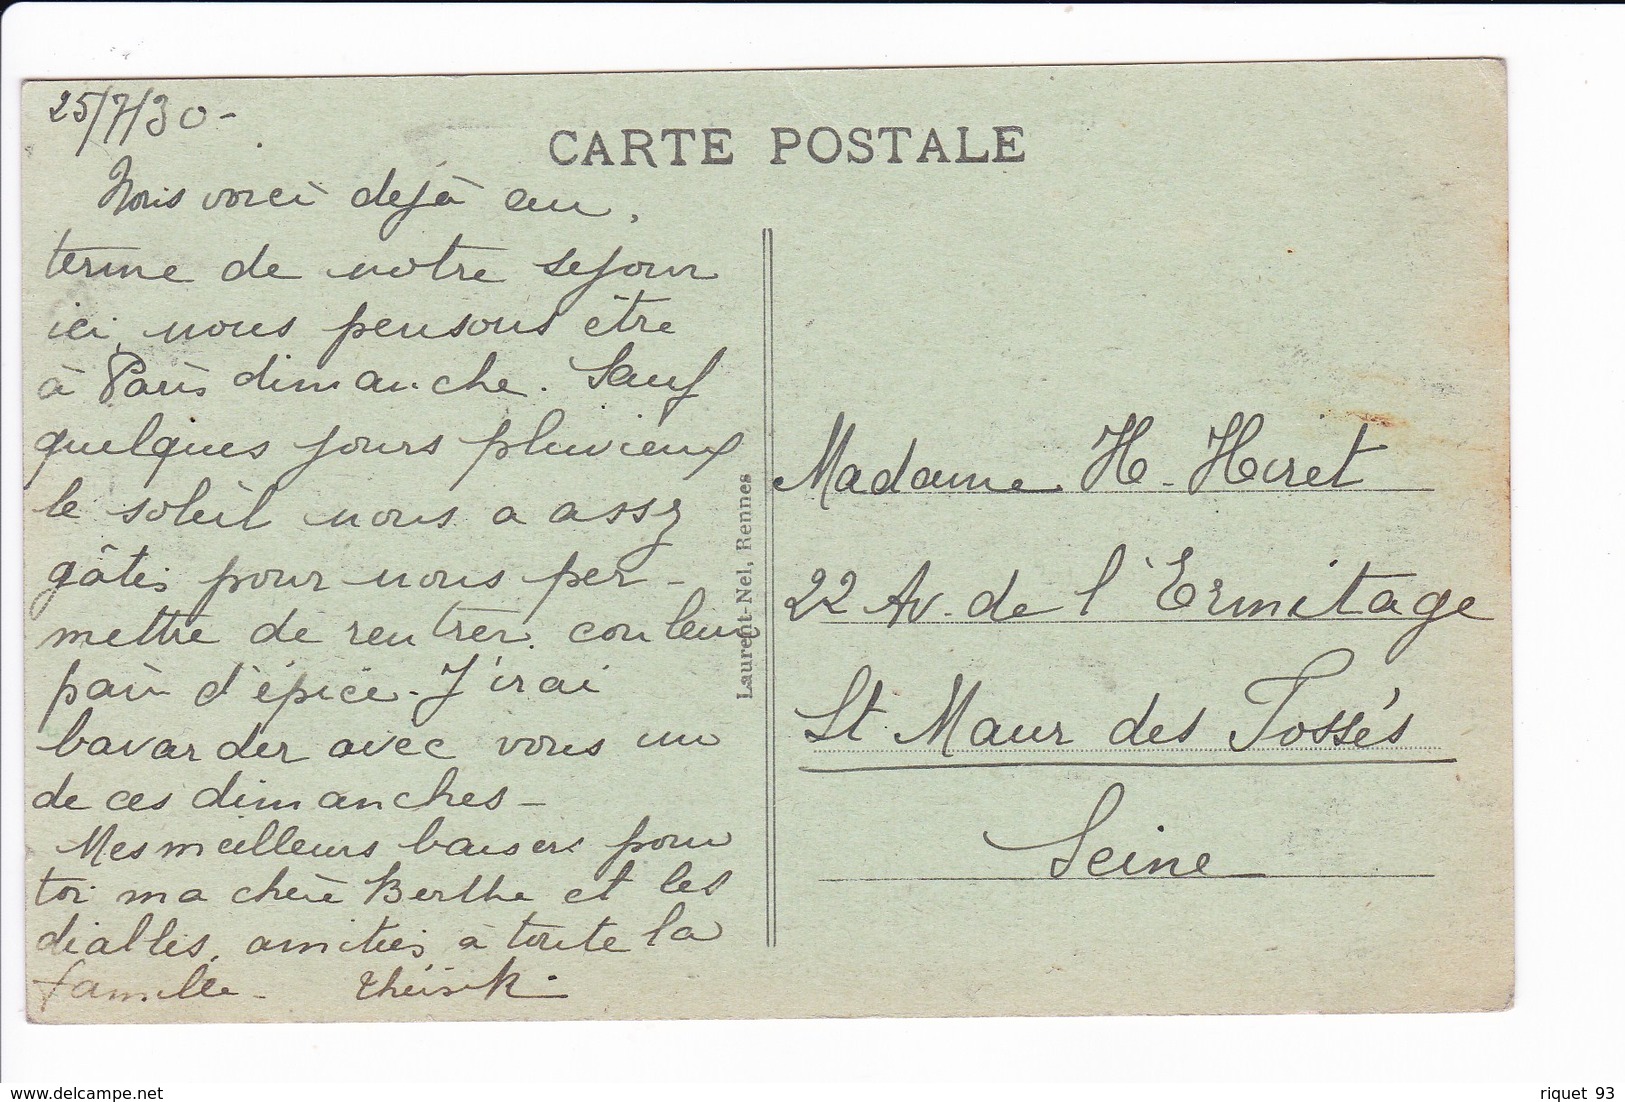 25/7/30-
CARTE POSTALE
Nous voici déjà au
terme de notre séjour
ici, nous pensons être
à Paris dimanche. Sauf
quelques jours pluvieux
le soleil nous a assez
gâtés pour nous per-
mettre de rentrer couleur
pain d'épice. J'irai
bavarder avec vous un
de ces dimanches-
Mes meilleurs baisers pour
toi ma chère Berthe et les
diables, amitiés à toute la
famille-
Laurent-Nel, Rennes
Madame H. Huret
22 Av. de l'Ermitage
St Maur des Fossés
Seine
www.delcampe.net
riquet 93